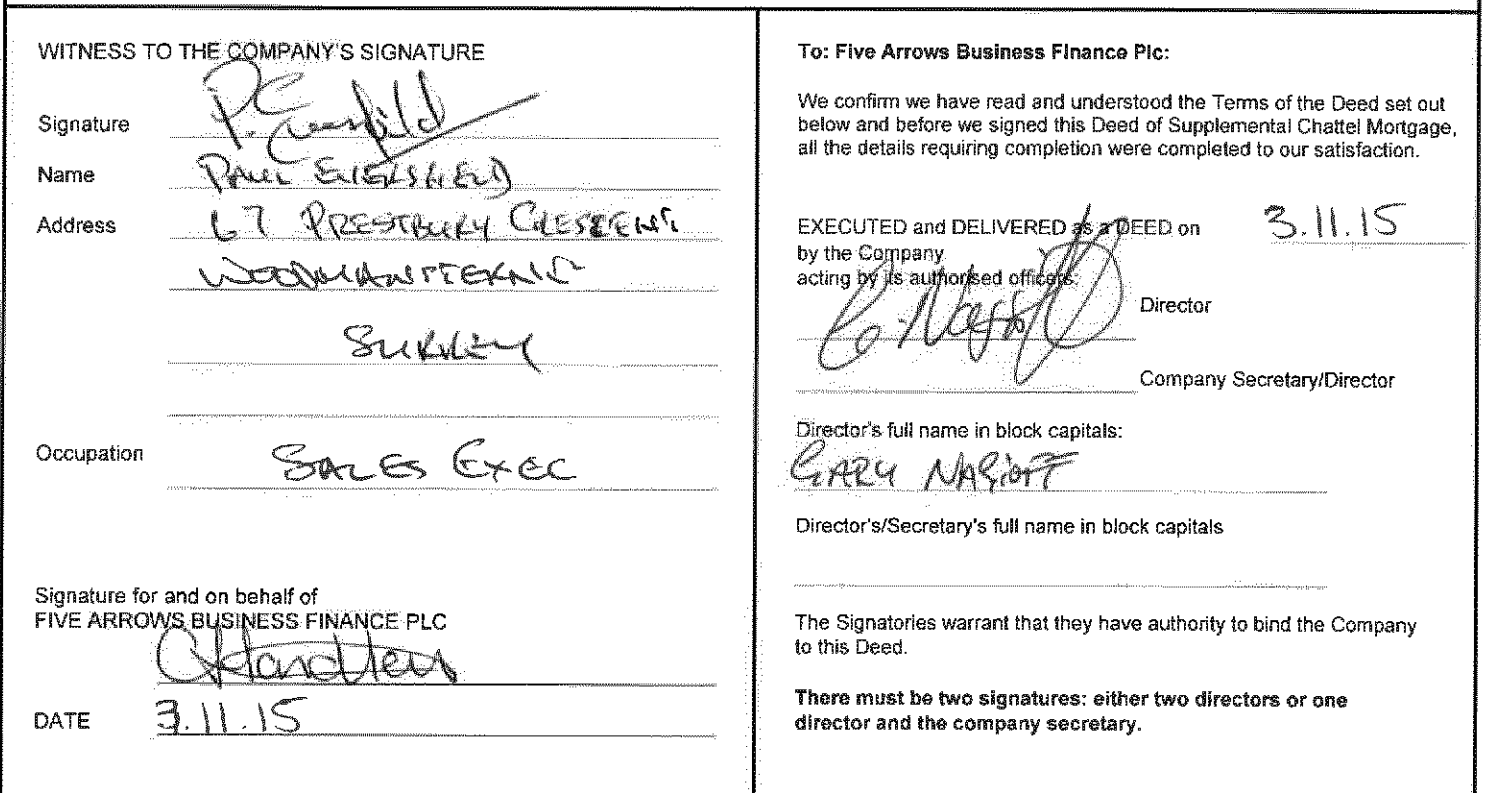 WITNESS TO THE COMPANY'S SIGNATURE
Signature
Name PAUL
Address 67 PRESTBURY CRESCENT
WOODMANSTERNE
SURREY
Occupation SALES EXEC
Signature for and on behalf of
FIVE ARROWS BUSINESS FINANCE PLC
DATE 3.11.15
To: Five Arrows Business Finance Plc:
We confirm we have read and understood the Terms of the Deed set out
below and before we signed this Deed of Supplemental Chattel Mortgage,
all the details requiring completion were completed to our satisfaction.
EXECUTED and DELIVERED as a DEED on 3.11.15
by the Company
acting by its authorised officers:
Director
Company Secretary/Director
Director's full name in block capitals:
GARY
Director's/Secretary's full name in block capitals
The Signatories warrant that they have authority to bind the Company
to this Deed.
There must be two signatures: either two directors or one
director and the company secretary.